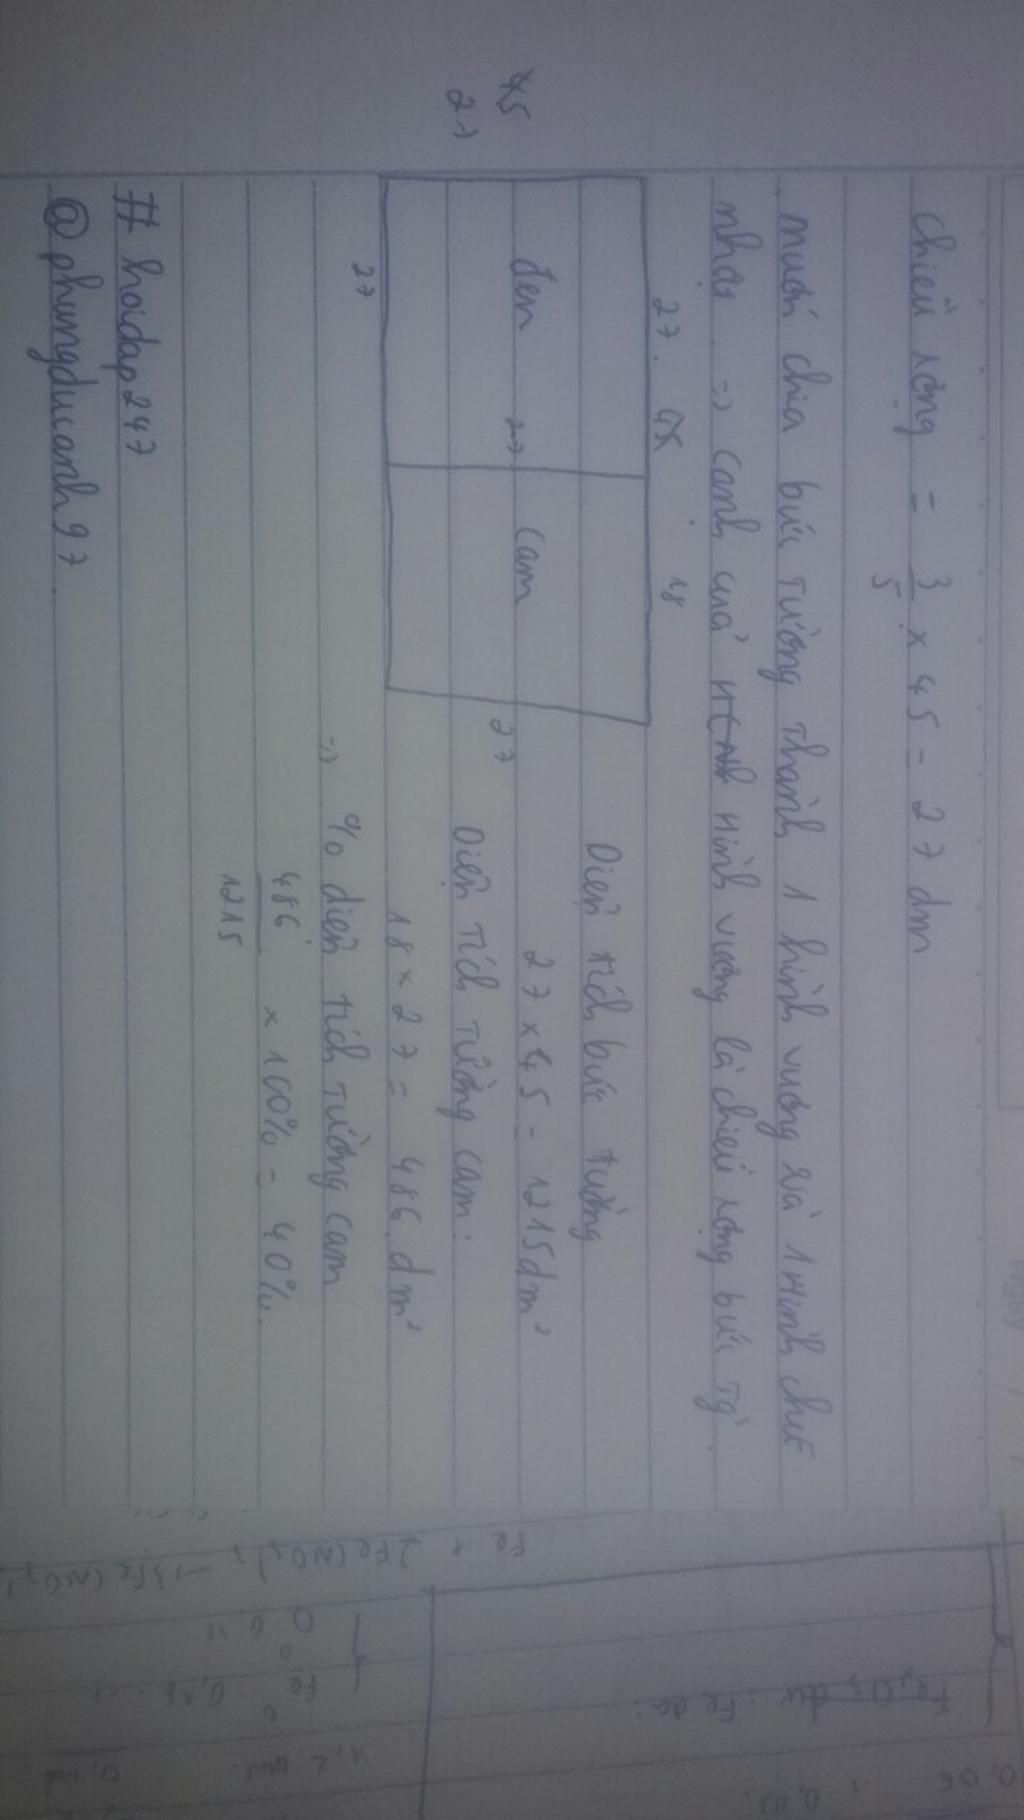 chiều rộng = 3/5 × 45 = 27 dm
muốn chia bức tường thành 1 hình vuông và 1 hình chữ
nhật => cạnh của hình vuông là chiều rộng bức tg
27 45 18
45
27
đen 27 cam 27
27
Diện tích bức tường
27 × 45 = 1215 dm²
Diện tích tường cam:
18 × 27 = 486 dm²
=> % diện tích tường cam
486/1215 × 100% = 40%.
# hoidap247
@phungducanh97
Fe + 2Fe(NO3)3